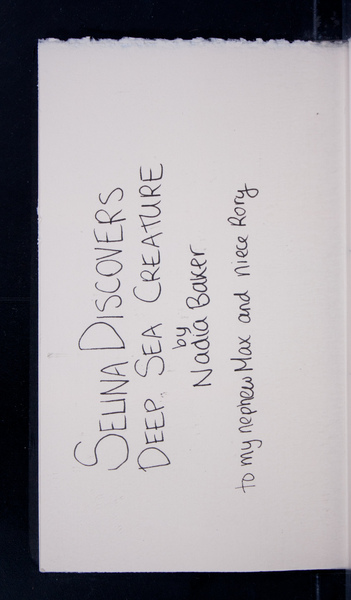 SELINA DISCOVERS
DEEP SEA CREATURE
by
Nadia Baker
to my nephew Max and niece Rory